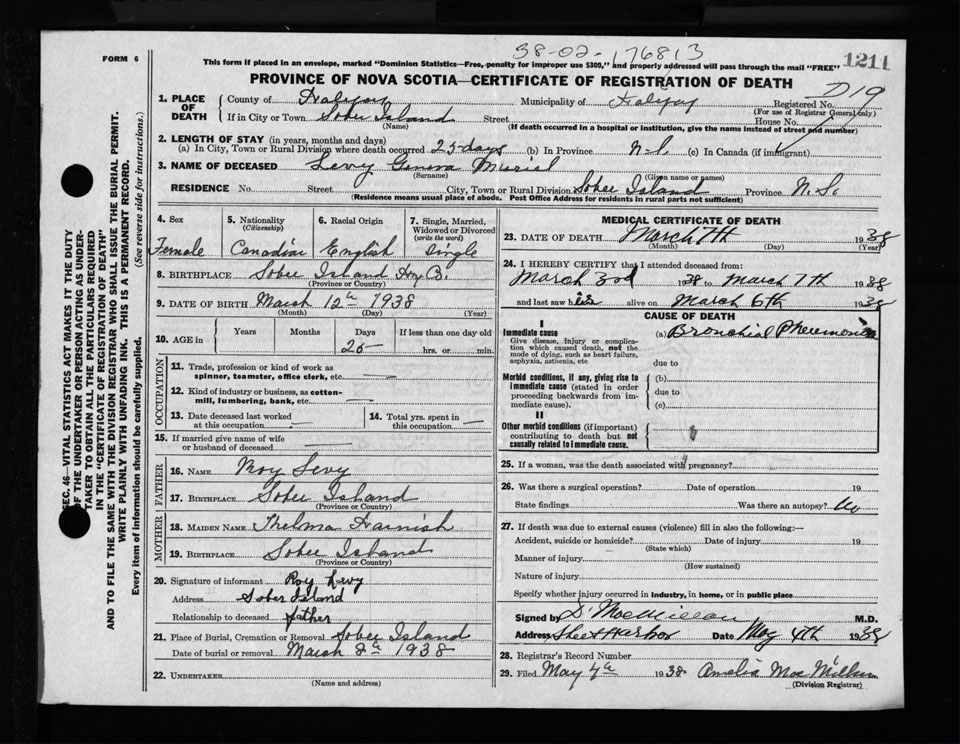 FORM 6
38-02-176813
1211
This form if placed in an envelope, marked "Dominion Statistics—Free, penalty for improper use $300," and properly addressed will pass through the mail "FREE"
PROVINCE OF NOVA SCOTIA—CERTIFICATE OF REGISTRATION OF DEATH
D19
1. PLACE OF DEATH
County of Halifax Municipality of Halifax Registered No.
(For use of Registrar General only)
If in City or Town Sober Island Street House No.
(Name) (If death occurred in a hospital or institution, give the name instead of street and number)
2. LENGTH OF STAY (in years, months and days)
(a) In City, Town or Rural Division where death occurred 25-days (b) In Province N.S. (c) In Canada (if immigrant)
3. NAME OF DECEASED Levy Geneva Muriel
(Surname) (Given name or names)
RESIDENCE No. Street City, Town or Rural Division Sober Island Province N.S.
(Residence means usual place of abode. Post Office Address for residents in rural parts not sufficient)
4. Sex 5. Nationality (Citizenship) 6. Racial Origin 7. Single, Married, Widowed or Divorced (write the word)
Female Canadian English Single
8. BIRTHPLACE Sober Island Hfx Co.
(Province or Country)
9. DATE OF BIRTH March 12th 1938
(Month) (Day) (Year)
10. AGE in Years Months Days If less than one day old
25 hrs. or min.
OCCUPATION
11. Trade, profession or kind of work as spinner, teamster, office clerk, etc. —
12. Kind of industry or business, as cotton-mill, lumbering, bank, etc. —
13. Date deceased last worked at this occupation —
14. Total yrs. spent in this occupation —
15. If married give name of wife or husband of deceased
FATHER
16. NAME Roy Levy
17. BIRTHPLACE Sober Island
(Province or Country)
MOTHER
18. MAIDEN NAME Thelma Harnish
19. BIRTHPLACE Sober Island
(Province or Country)
20. Signature of informant Roy Levy
Address Sober Island
Relationship to deceased father
21. Place of Burial, Cremation or Removal Sober Island
Date of burial or removal March 8th 1938
22. UNDERTAKER
(Name and address)
MEDICAL CERTIFICATE OF DEATH
23. DATE OF DEATH March 7th 1938
(Month) (Day) (Year)
24. I HEREBY CERTIFY that I attended deceased from:
March 3rd 1938 to March 7th 1938
and last saw her alive on March 6th 1938
CAUSE OF DEATH
I
Immediate cause (a) Bronchial Pneumonia
Give disease, injury or complication which caused death, not the mode of dying, such as heart failure, asphyxia, asthenia, etc
due to
Morbid conditions, if any, giving rise to immediate cause (stated in order proceeding backwards from immediate cause).
(b)
due to
(c)
II
Other morbid conditions (if important) contributing to death but not causally related to immediate cause.
25. If a woman, was the death associated with pregnancy?
26. Was there a surgical operation? Date of operation 19
State findings Was there an autopsy? No
27. If death was due to external causes (violence) fill in also the following:—
Accident, suicide or homicide? Date of injury 19
(State which)
Manner of injury
(How sustained)
Nature of injury
Specify whether injury occurred in industry, in home, or in public place
Signed by D. MacMillan M.D.
Address Sheet Harbor Date May 4th 1938
28. Registrar's Record Number
29. Filed May 4th 1938 Amelia MacMillan
(Division Registrar)
SEC. 46—VITAL STATISTICS ACT MAKES IT THE DUTY
OF THE UNDERTAKER OR PERSON ACTING AS UNDER-
TAKER TO OBTAIN ALL THE PARTICULARS REQUIRED
IN THE "CERTIFICATE OF REGISTRATION OF DEATH"
AND TO FILE THE SAME WITH THE DIVISION REGISTRAR WHO SHALL ISSUE THE BURIAL PERMIT.
WRITE PLAINLY WITH UNFADING INK. THIS IS A PERMANENT RECORD.
Every item of information should be carefully supplied. (See reverse side for instructions.)